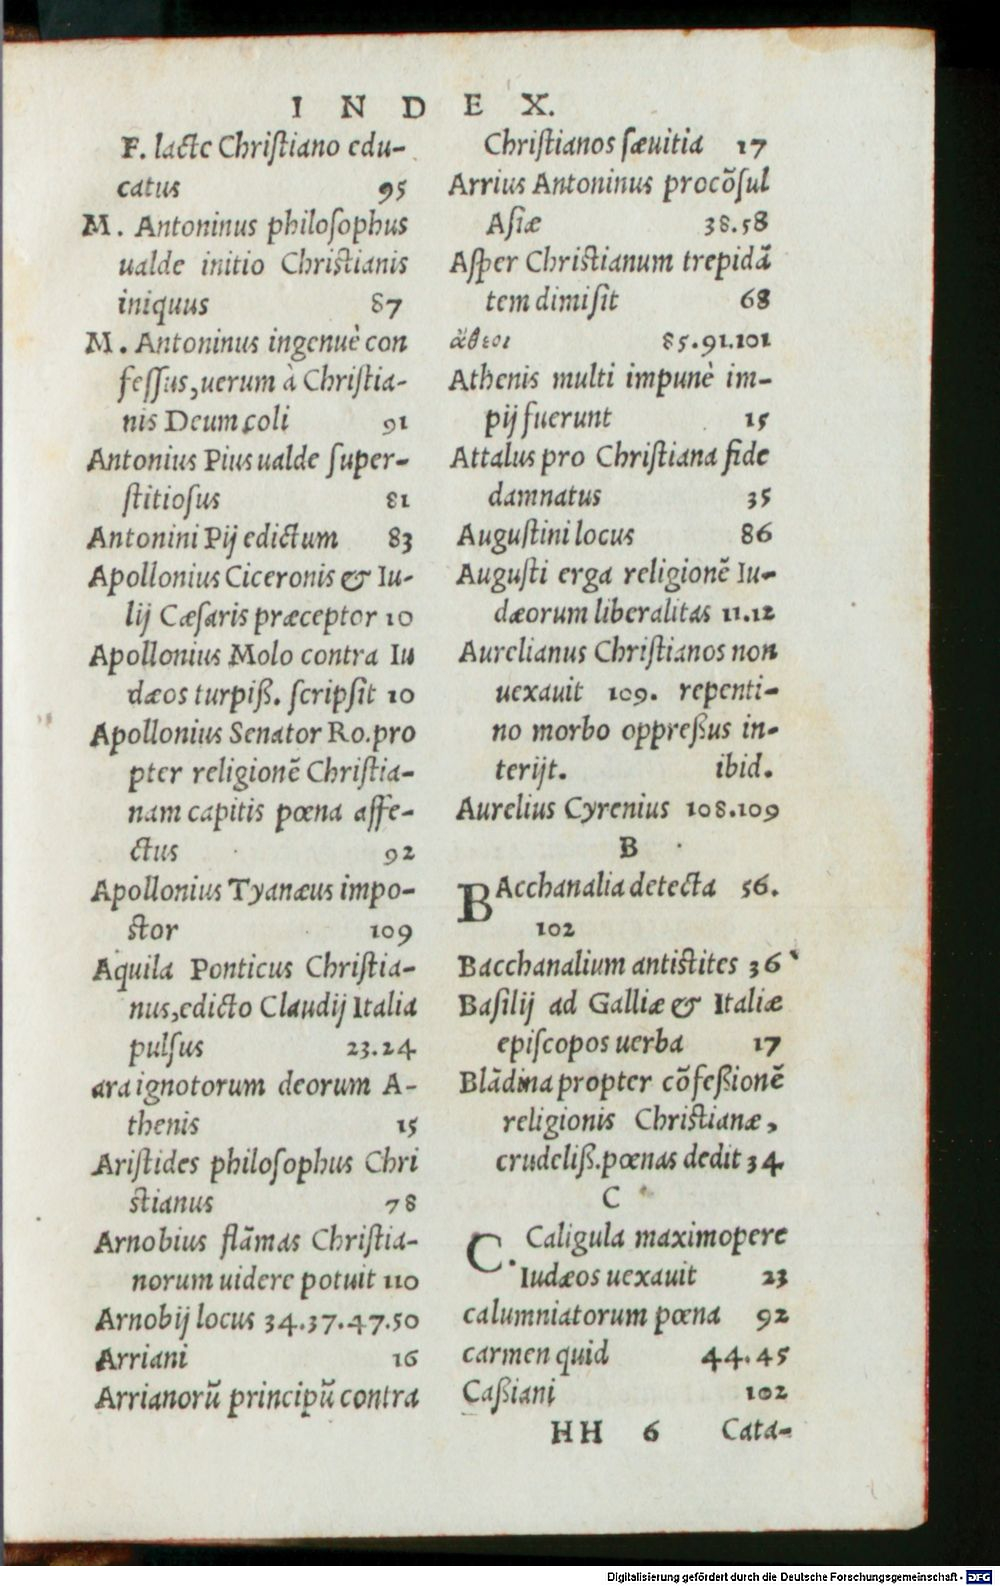 INDEX.
F. lacte Christiano edu-
catus 95
M. Antoninus philosophus
ualde initio Christianis
iniquus 87
M. Antoninus ingenuè con
fessus, uerum à Christia-
nis Deum coli 91
Antonius Pius ualde super-
stitiosus 81
Antonini Pij edictum 83
Apollonius Ciceronis & Iu-
lij Cæsaris præceptor 10
Apollonius Molo contra Iu
dæos turpiß. scripsit 10
Apollonius Senator Ro. pro
pter religionē Christia-
nam capitis pœna affe-
ctus 92
Apollonius Tyanæus impo-
stor 109
Aquila Ponticus Christia-
nus, edicto Claudij Italia
pulsus 23.24
ara ignotorum deorum A-
thenis 15
Aristides philosophus Chri
stianus 78
Arnobius flāmas Christia-
norum uidere potuit 110
Arnobij locus 34.37.47.50
Arriani 16
Arrianorū principū contra
Christianos sæuitia 17
Arrius Antoninus procōsul
Asiæ 38.58
Asper Christianum trepidā
tem dimisit 68
ἄθεοι 85.91.101
Athenis multi impunè im-
pij fuerunt 15
Attalus pro Christiana fide
damnatus 35
Augustini locus 86
Augusti erga religionē Iu-
dæorum liberalitas 11.12
Aurelianus Christianos non
uexauit 109. repenti-
no morbo oppreßus in-
terijt. ibid.
Aurelius Cyrenius 108.109
B
BAcchanalia detecta 56.
102
Bacchanalium antistites 36
Basilij ad Galliæ & Italiæ
episcopos uerba 17
Blādina propter cōfeßionē
religionis Christianæ,
crudeliß. pœnas dedit 34
C
C. Caligula maximopere
Iudæos uexauit 23
calumniatorum pœna 92
carmen quid 44.45
Caßiani 102
HH 6 Cata-
Digitalisierung gefördert durch die Deutsche Forschungsgemeinschaft - DFG